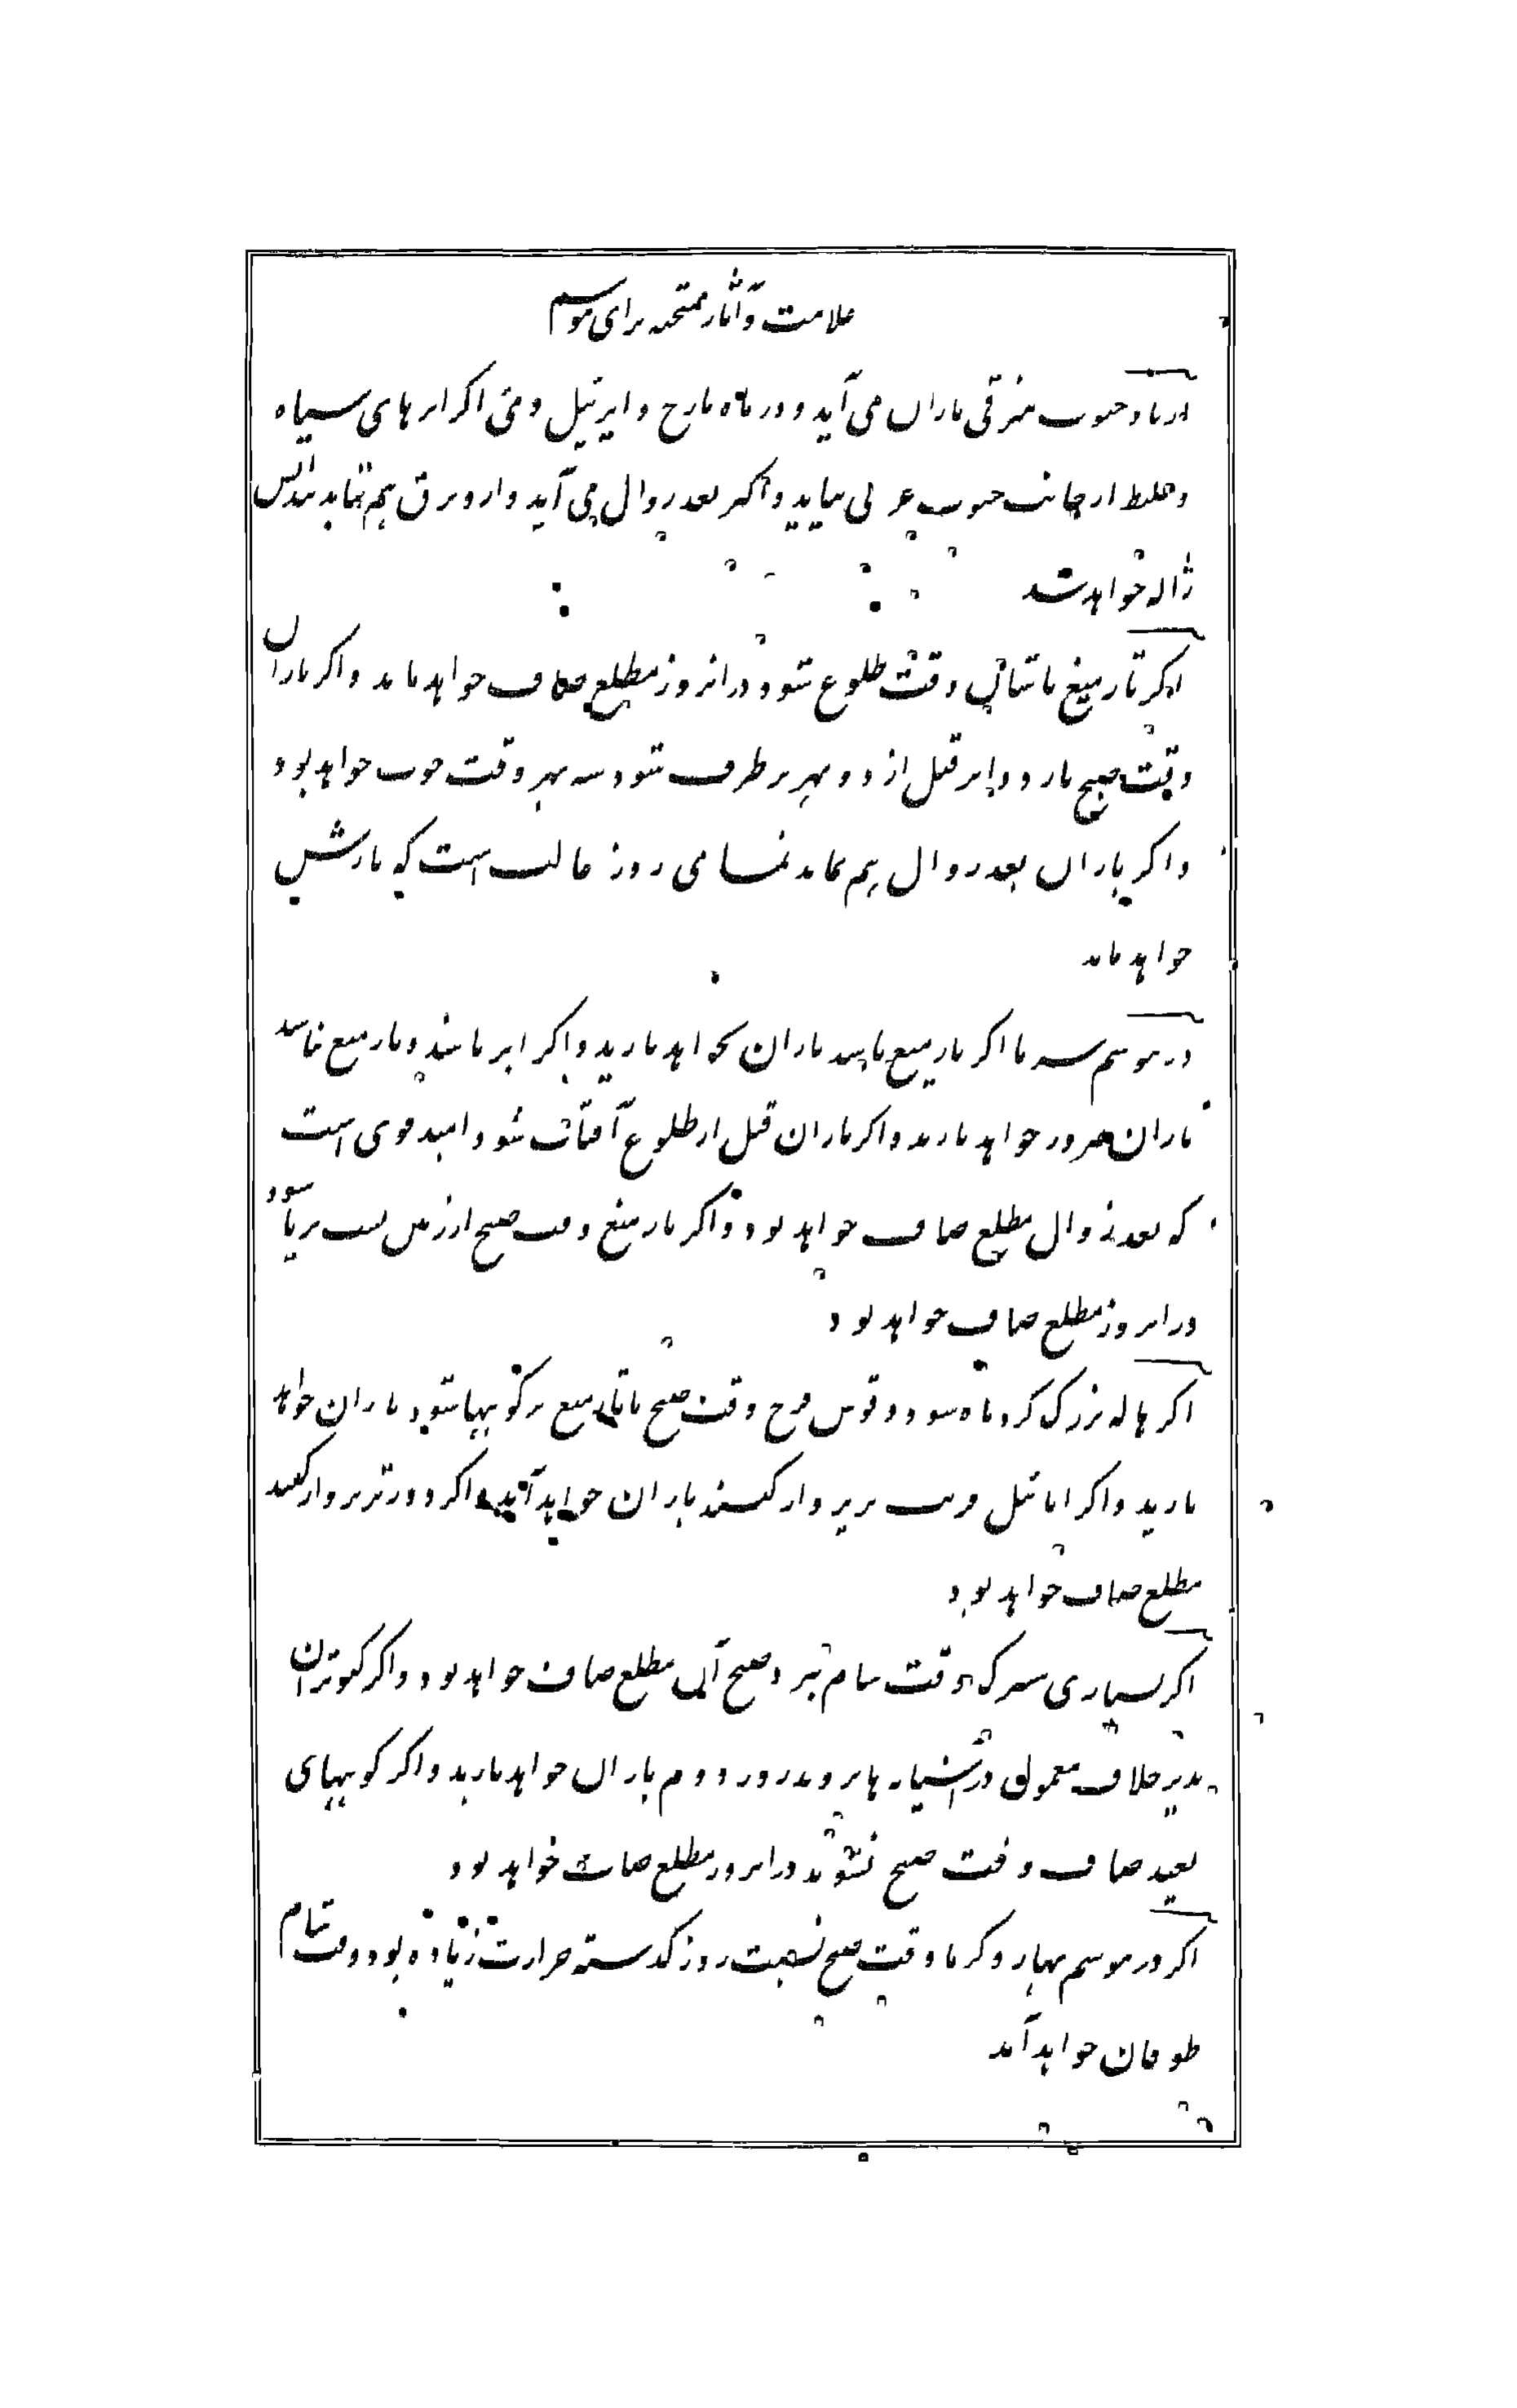 علامت و آثار ممتحنه برای موسم
از باد جنوب شرقی باران می آید و در ماه مارچ و اپریل و مئی اگر ابرهای سیاه
و غلیظ از جانب جنوب غربی بیاید و اکثر بعد زوال می آید و از و برق هم نماید
ژاله خواهد شد
اگر تار میغ تابستانی وقت طلوع شود در انروز مطلع صاف خواهد ماند و اگر باران
وقت صبح بارد و ابر قبل از دوپهر برطرف شود سه پهر وقت خوب خواهد بود
و اگر باران بعد زوال هم بماند تمامی روز غالب است که بارش
خواهد ماند
در موسم سرما اگر تار میغ باشد باران نخواهد بارید و اگر ابر باشد و تار میغ نباشد
باران ضرور خواهد بارید و اگر باران قبل از طلوع آفتاب شود امید قوی است
که بعد زوال مطلع صاف خواهد بود و اگر تار میغ وقت صبح از زمین برپا شود
در امروز مطلع صاف خواهد بود
اگر هاله بزرگ گرد ماه شود و قوس قزح وقت صبح یا تار میغ بر کوهها شود باران خواهد
بارید و اگر ابابیل قریب بر پرواز کنند باران خواهد آمد و اگر دورتر پرواز کنند
مطلع صاف خواهد بود
اگر بسیاری وقت شام صبح آن مطلع صاف خواهد بود و اگر کبوتران
بدیر خلاف معمول در آشیانه ها بروند روز دوم باران خواهد بارید و اگر کوههای
بعید صاف وقت صبح نشوند در امروز مطلع صاف خواهد بود
اگر در موسم بهار و گرما وقت صبح نسبت روز گذشته حرارت زیاده بود وقت شام
طوفان خواهد آمد